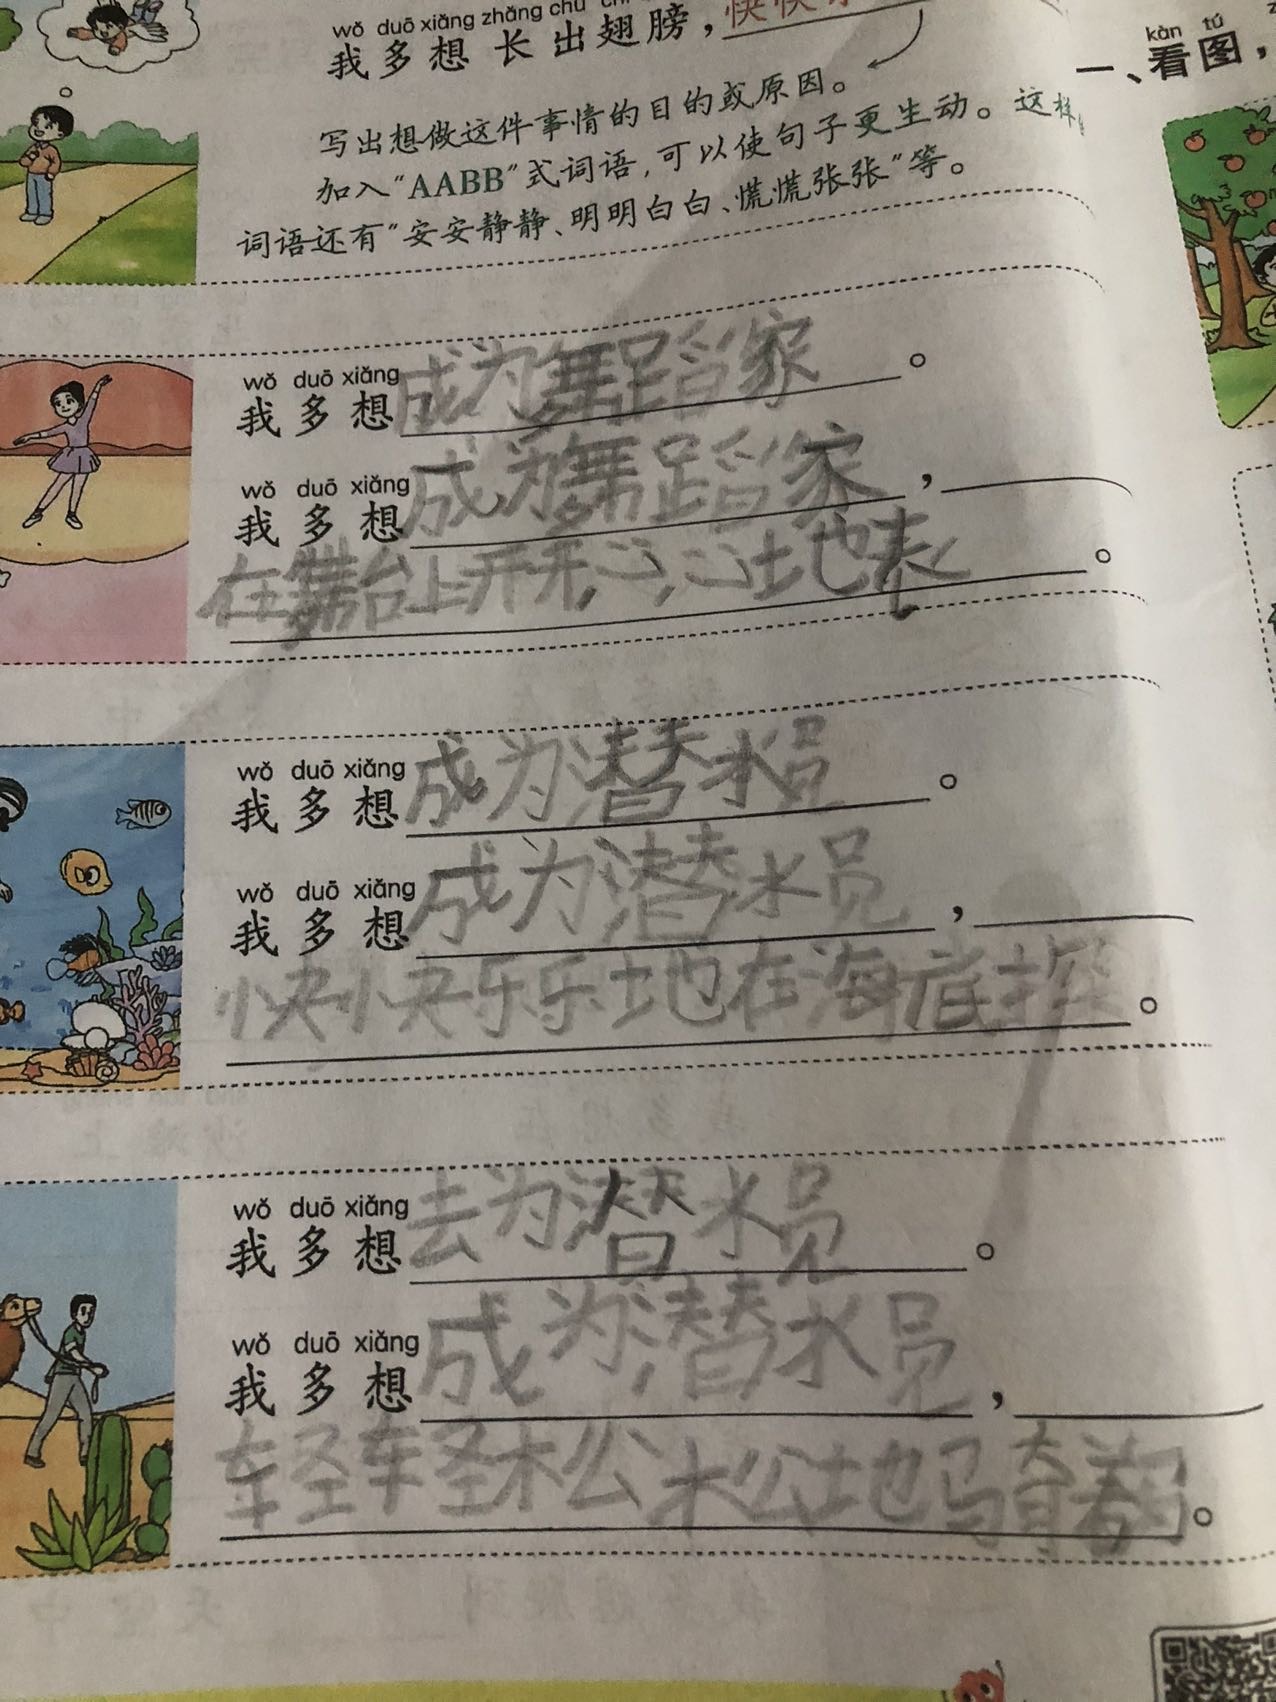 wǒ duō xiǎng zhǎng chū
我多想长出翅膀，快快
写出想做这件事情的目的或原因。
加入“AABB”式词语，可以使句子更生动。这样
词语还有“安安静静、明明白白、慌慌张张”等。
wǒ duō xiǎng
我多想成为舞蹈家。
wǒ duō xiǎng
我多想成为舞蹈家，
在舞台上开开心心地表。
wǒ duō xiǎng
我多想成为潜水员。
wǒ duō xiǎng
我多想成为潜水员，
快快乐乐地在海底探。
wǒ duō xiǎng
我多想去为潜水员。
wǒ duō xiǎng
我多想成为潜水员，
轻轻松松地骑着。
kàn tú
一、看图，